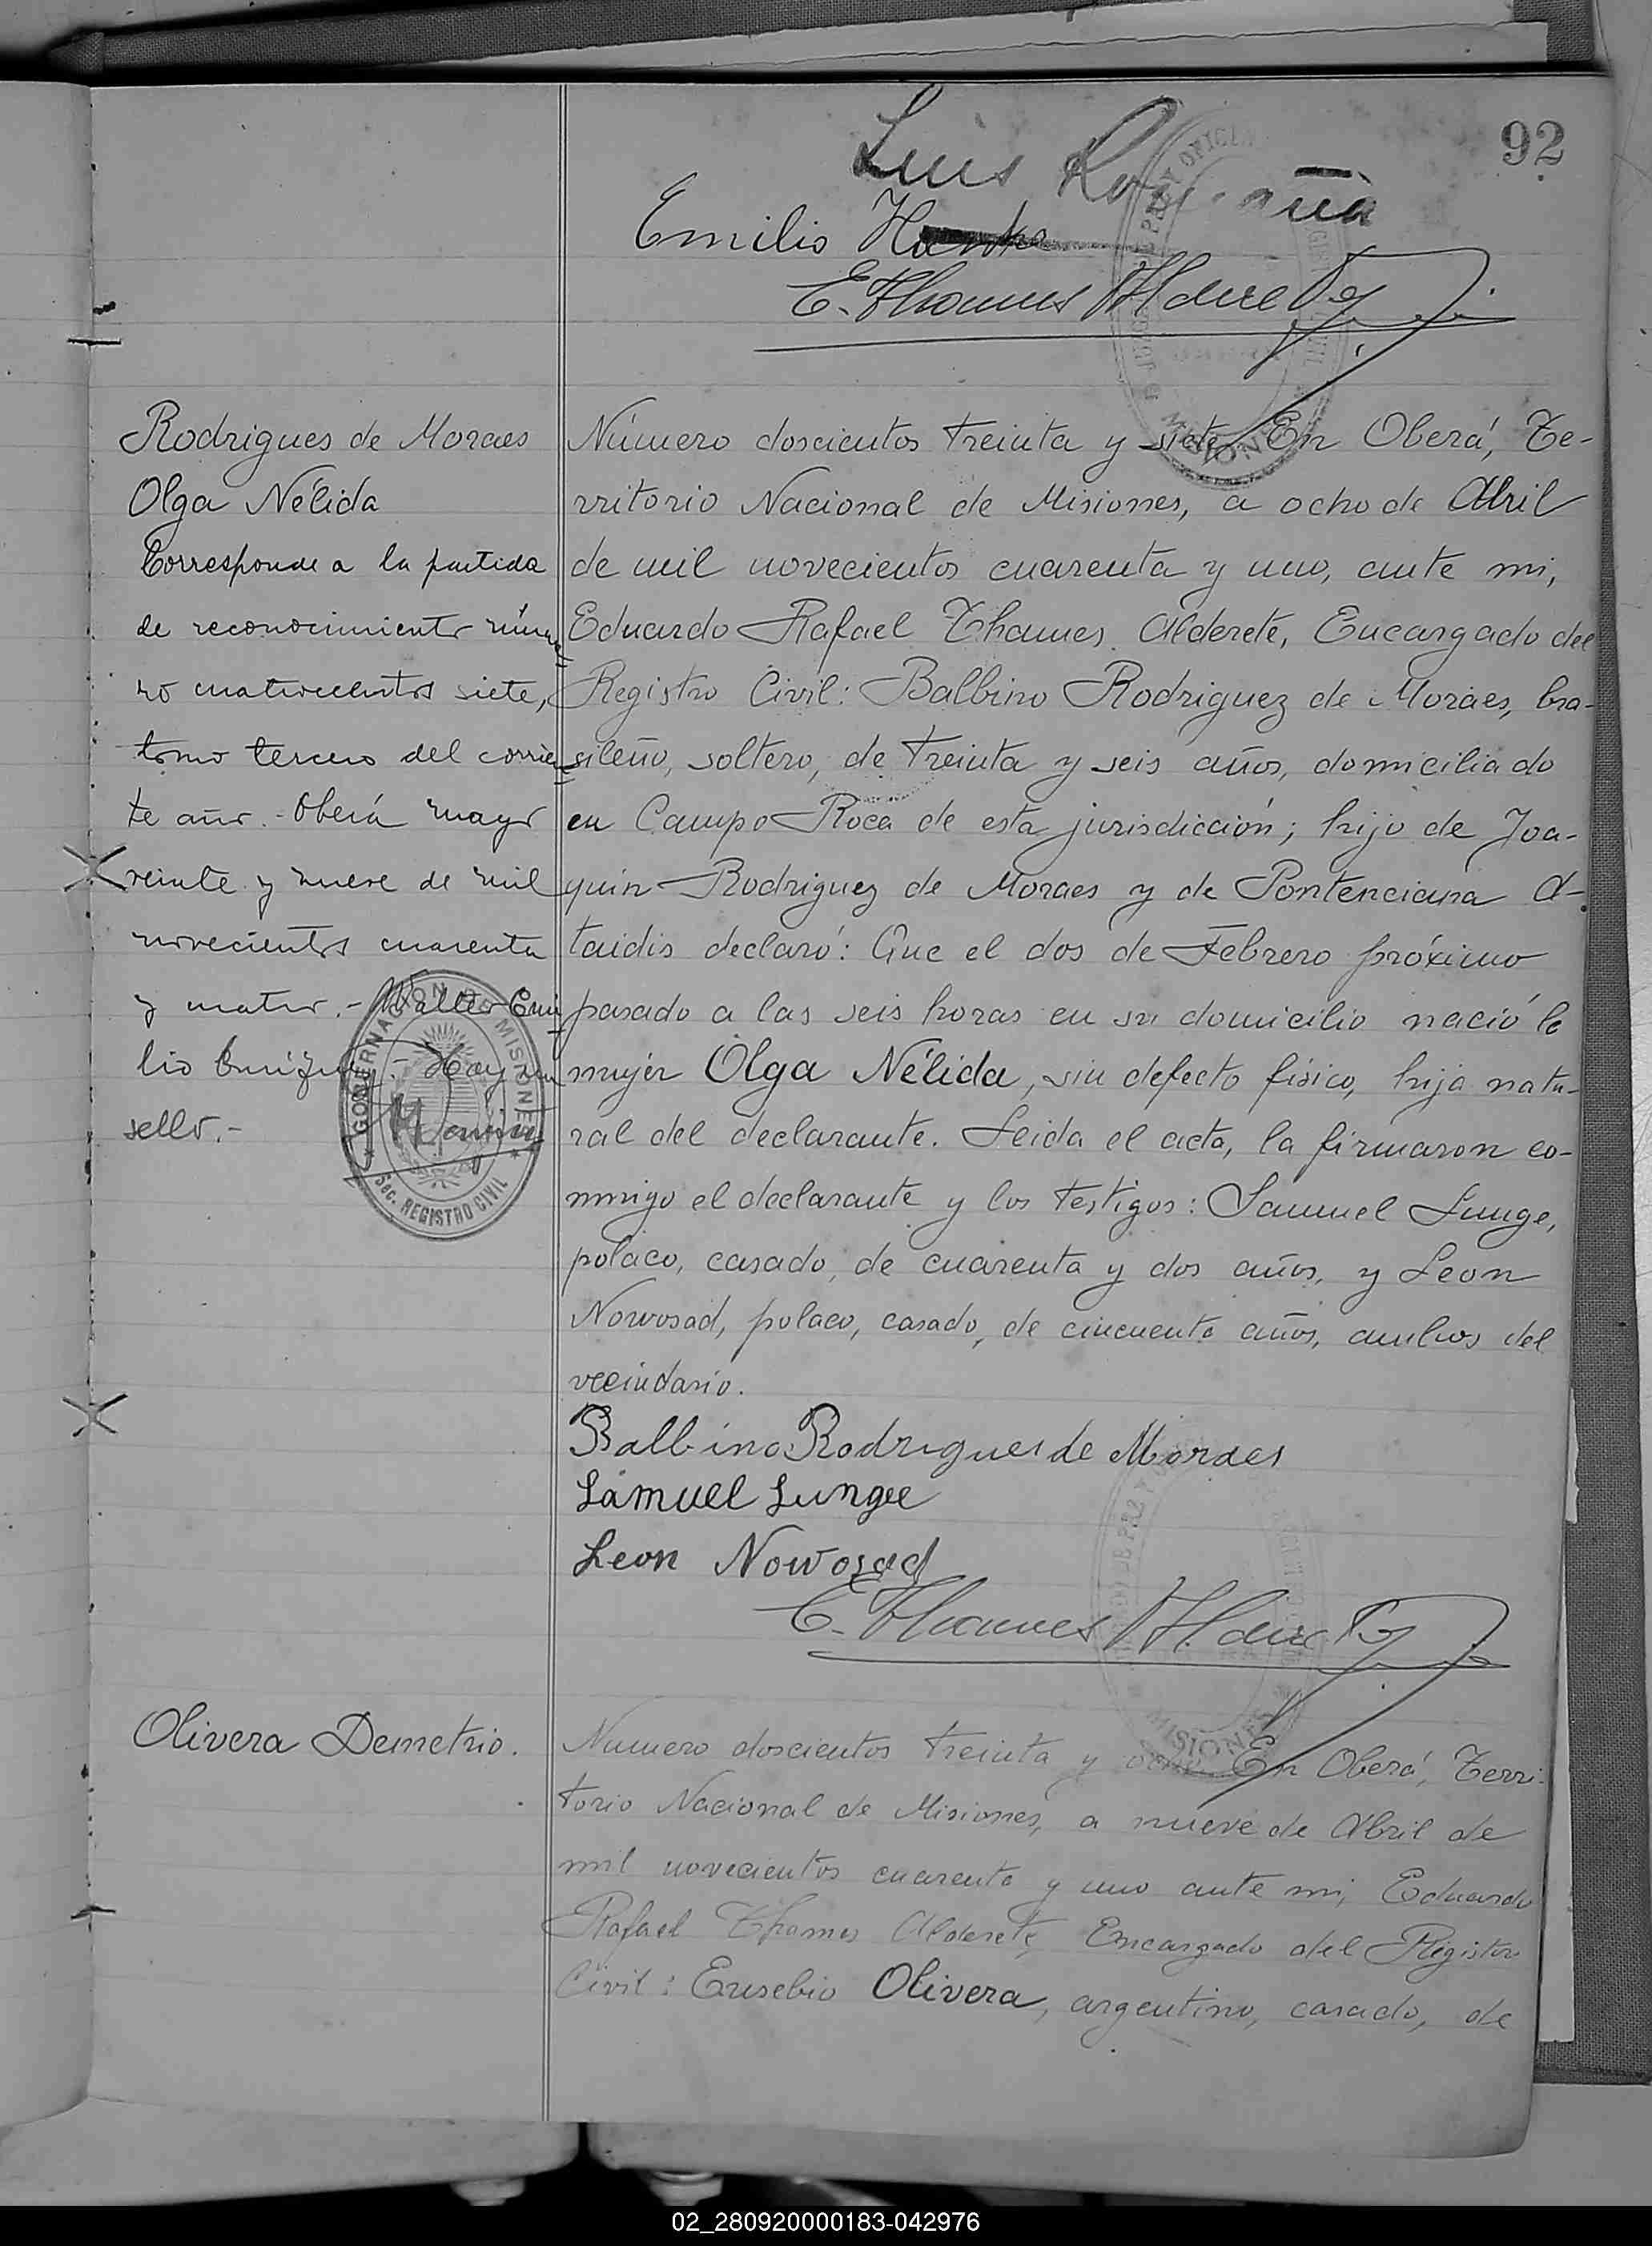 92
Luis
Emilio
E. Thames Alderete
Rodrigues de Moraes
Olga Nélida
Corresponde a la partida
de reconocimiento núme-
ro cuatrocientos siete,
tomo tercero del corrien-
te año.- Oberá mayo
veinte y nueve de mil
novecientos cuarenta
y cuatro.- Walter Emi-
lio - Hay un
sello.-
GOBERNACION DE MISIONES
SEC. REGISTRO CIVIL
Número doscientos treinta y siete En Oberá, Te-
rritorio Nacional de Misiones, a ocho de Abril
de mil novecientos cuarenta y uno, ante mi,
Eduardo Rafael Thames Alderete, Encargado del
Registro Civil: Balbino Rodriguez de Moraes, bra-
sileño, soltero, de treinta y seis años, domiciliado
en Campo Roca de esta jurisdicción; hijo de Joa-
quin Rodriguez de Moraes y de Pontenciana A-
taidis declaró: Que el dos de Febrero próximo
pasado a las seis horas en su domicilio nació la
mujer Olga Nélida, sin defecto fisico, hija natu-
ral del declarante. Leida el acta, la firmaron co-
nmigo el declarante y los testigos: Samuel Lunge,
polaco, casado, de cuarenta y dos años, y Leon
Nowosad, polaco, casado, de cincuenta años, ambos del
vecindario.
Balbino Rodrigues de Moraes
Samuel Lunge
Leon Nowosad
E. Thames Alderete
MISIONES
Olivera Demetrio.
Numero doscientos treinta y ocho En Oberá, Terri-
torio Nacional de Misiones, a nueve de Abril de
mil novecientos cuarenta y uno ante mi, Eduardo
Rafael Thames Alderete, Encargado del Registro
Civil: Eusebio Olivera, argentino, casado, de
02_280920000183-042976